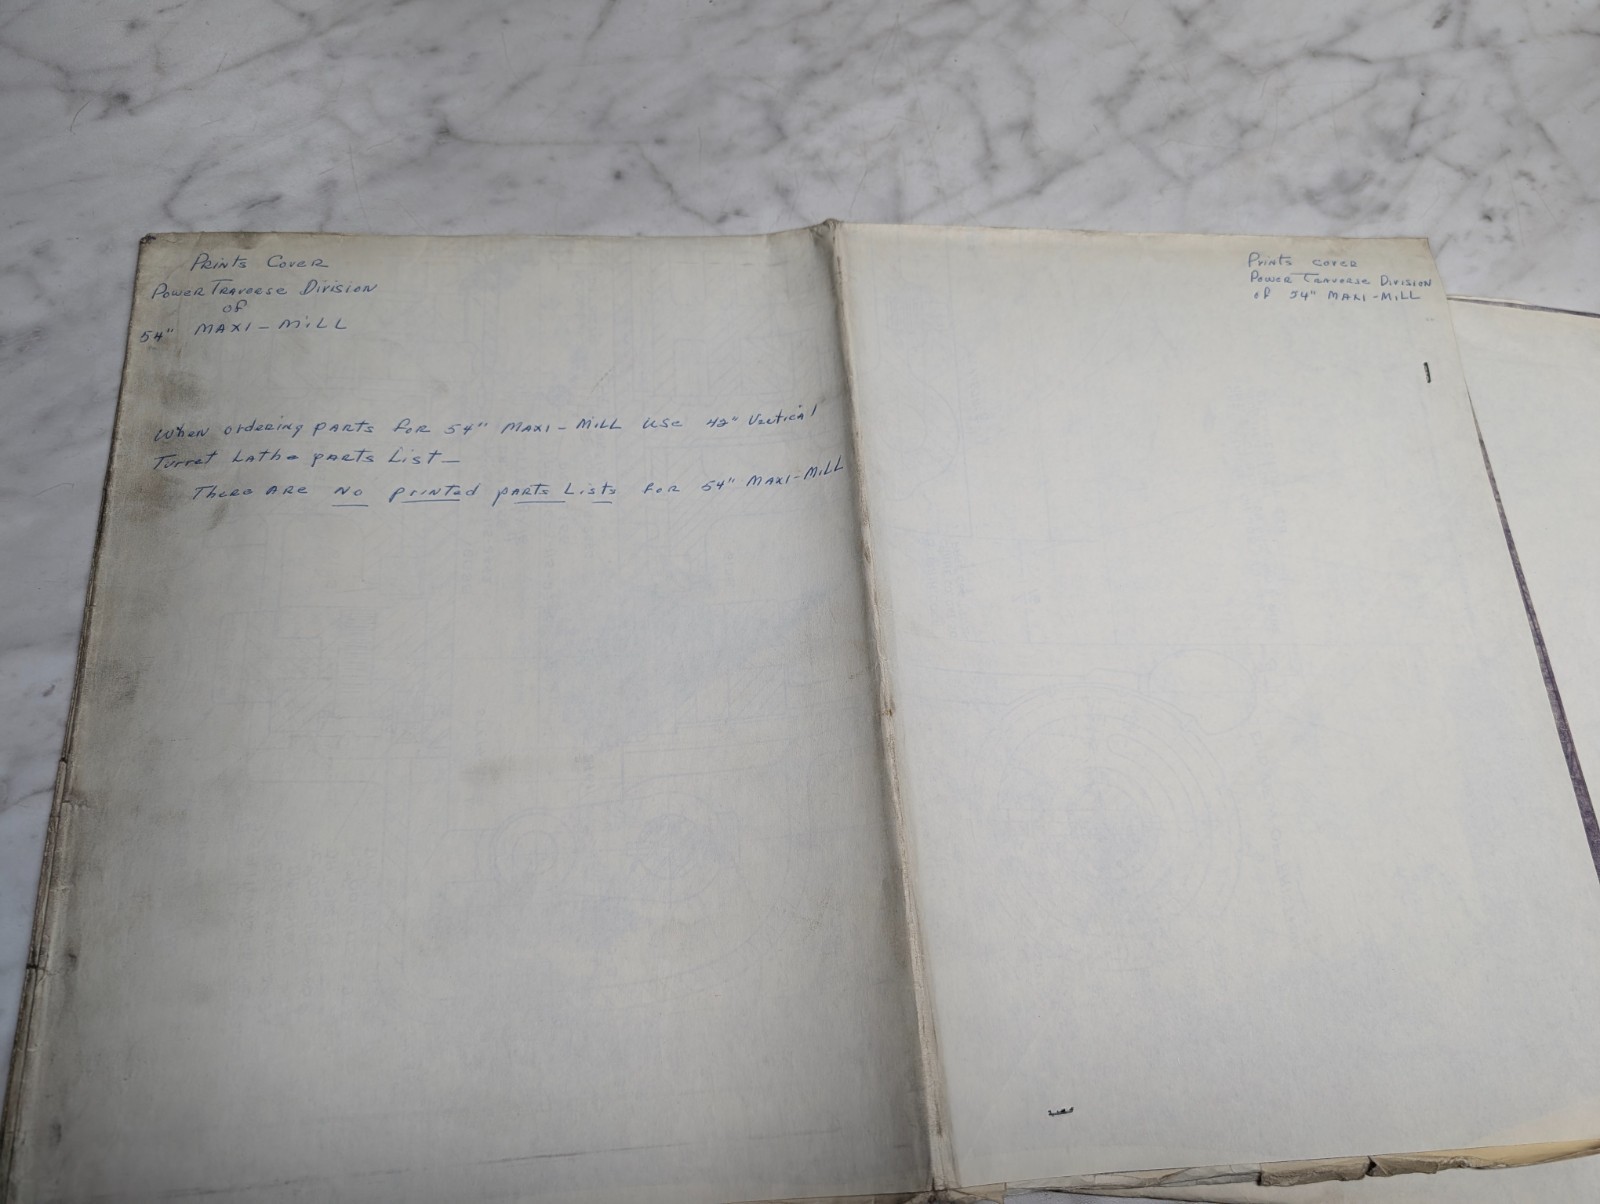 Prints Cover
Power Traverse Division
of
54" MAXI-MILL
When ordering parts for 54" MAXI-MILL use 42" Vertical
Turret Lathe parts List—
There are no printed parts Lists for 54" MAXI-MILL
Prints cover
Power Traverse Division
of 54" MAXI-MILL